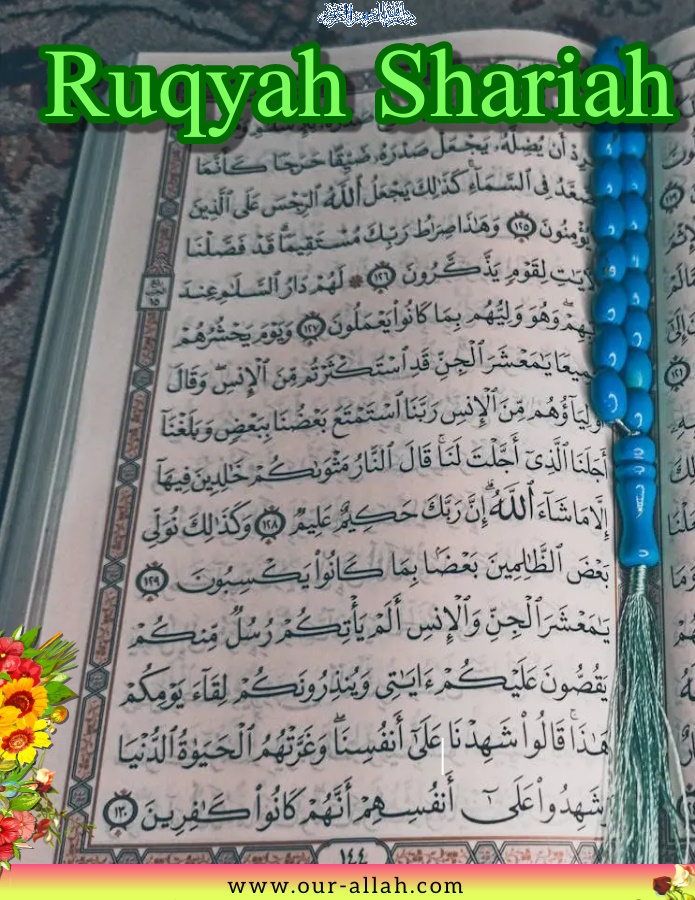 Ruqyah Shariah
أَن يُضِلَّهُۥ يَجْعَلْ صَدْرَهُۥ ضَيِّقًا حَرَجًا كَأَنَّمَا
يَصَّعَّدُ فِى ٱلسَّمَآءِ ۚ كَذَٰلِكَ يَجْعَلُ ٱللَّهُ ٱلرِّجْسَ عَلَى ٱلَّذِينَ
يُؤْمِنُونَ ١٢٥ وَهَٰذَا صِرَٰطُ رَبِّكَ مُسْتَقِيمًا ۗ قَدْ فَصَّلْنَا
ٱلْءَايَٰتِ لِقَوْمٍ يَذَّكَّرُونَ ١٢٦ ۞ لَهُمْ دَارُ ٱلسَّلَٰمِ عِندَ
رَبِّهِمْ ۖ وَهُوَ وَلِيُّهُم بِمَا كَانُوا۟ يَعْمَلُونَ ١٢٧ وَيَوْمَ يَحْشُرُهُمْ
جَمِيعًا يَٰمَعْشَرَ ٱلْجِنِّ قَدِ ٱسْتَكْثَرْتُم مِّنَ ٱلْإِنسِ ۖ وَقَالَ
أَوْلِيَآؤُهُم مِّنَ ٱلْإِنسِ رَبَّنَا ٱسْتَمْتَعَ بَعْضُنَا بِبَعْضٍ وَبَلَغْنَآ
أَجَلَنَا ٱلَّذِىٓ أَجَّلْتَ لَنَا ۚ قَالَ ٱلنَّارُ مَثْوَىٰكُمْ خَٰلِدِينَ فِيهَآ
إِلَّا مَا شَآءَ ٱللَّهُ ۗ إِنَّ رَبَّكَ حَكِيمٌ عَلِيمٌ ١٢٨ وَكَذَٰلِكَ نُوَلِّى
بَعْضَ ٱلظَّٰلِمِينَ بَعْضًۢا بِمَا كَانُوا۟ يَكْسِبُونَ ١٢٩
يَٰمَعْشَرَ ٱلْجِنِّ وَٱلْإِنسِ أَلَمْ يَأْتِكُمْ رُسُلٌ مِّنكُمْ
يَقُصُّونَ عَلَيْكُمْ ءَايَٰتِى وَيُنذِرُونَكُمْ لِقَآءَ يَوْمِكُمْ
هَٰذَا ۚ قَالُوا۟ شَهِدْنَا عَلَىٰٓ أَنفُسِنَا ۖ وَغَرَّتْهُمُ ٱلْحَيَوٰةُ ٱلدُّنْيَا
وَشَهِدُوا۟ عَلَىٰٓ أَنفُسِهِمْ أَنَّهُمْ كَانُوا۟ كَٰفِرِينَ ١٣٠
١٤٤
www.our-allah.com